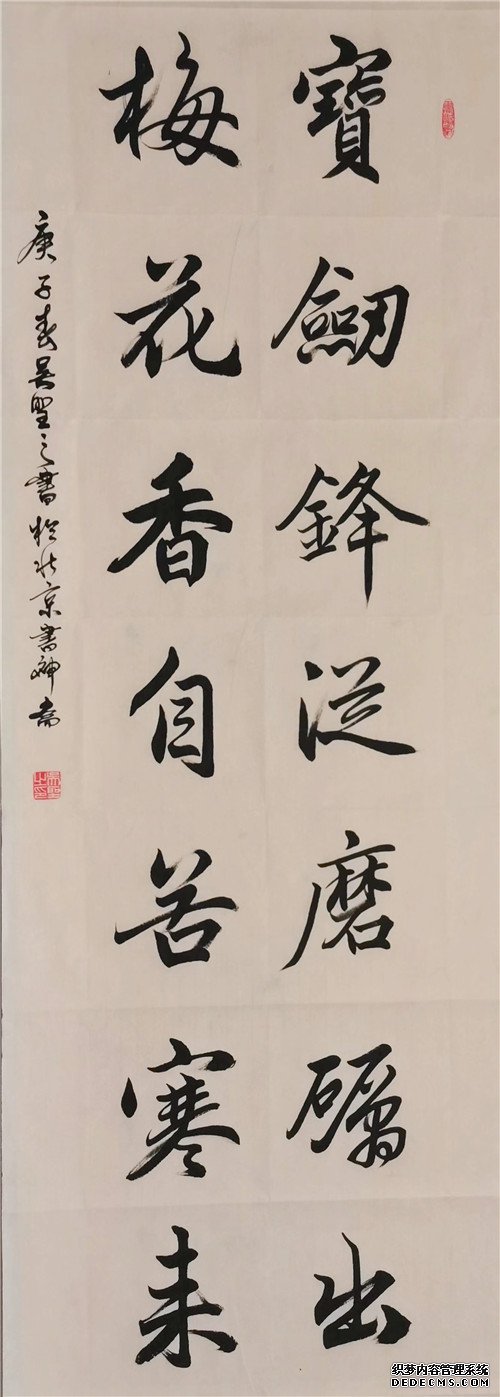 寶劒鋒從磨礪出
梅花香自苦寒來
庚子春吴聖之書於北京書神斋
织梦内容管理系统
DEDECMS.COM